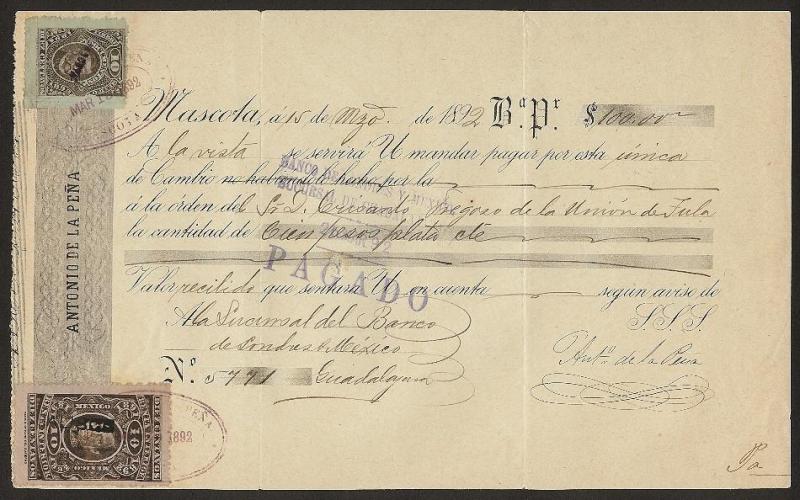 Mascota, á 15 de Mzo. de 1892 B.ª P.r $100.00
A la vista se servirá U mandar pagar por esta única
de Cambio no habiendolo hecho por la
á la orden del Sr. D. Crisanto Fregoso de la Unión de Tula
la cantidad de Cien pesos plata cte
Valor recibido que sentará U en cuenta según aviso de
S.S.S.
A la Sucursal del Banco
de Londres & México
Antº. de la Peña
Nº. 5771 Guadalajara
Pa
ANTONIO DE LA PEÑA
BANCO DE LONDRES Y MEXICO
SUCURSAL DE
PAGADO
MAR 1 1892
MEXICO
10
10
MEXICO
DIEZ CENTAVOS
1892